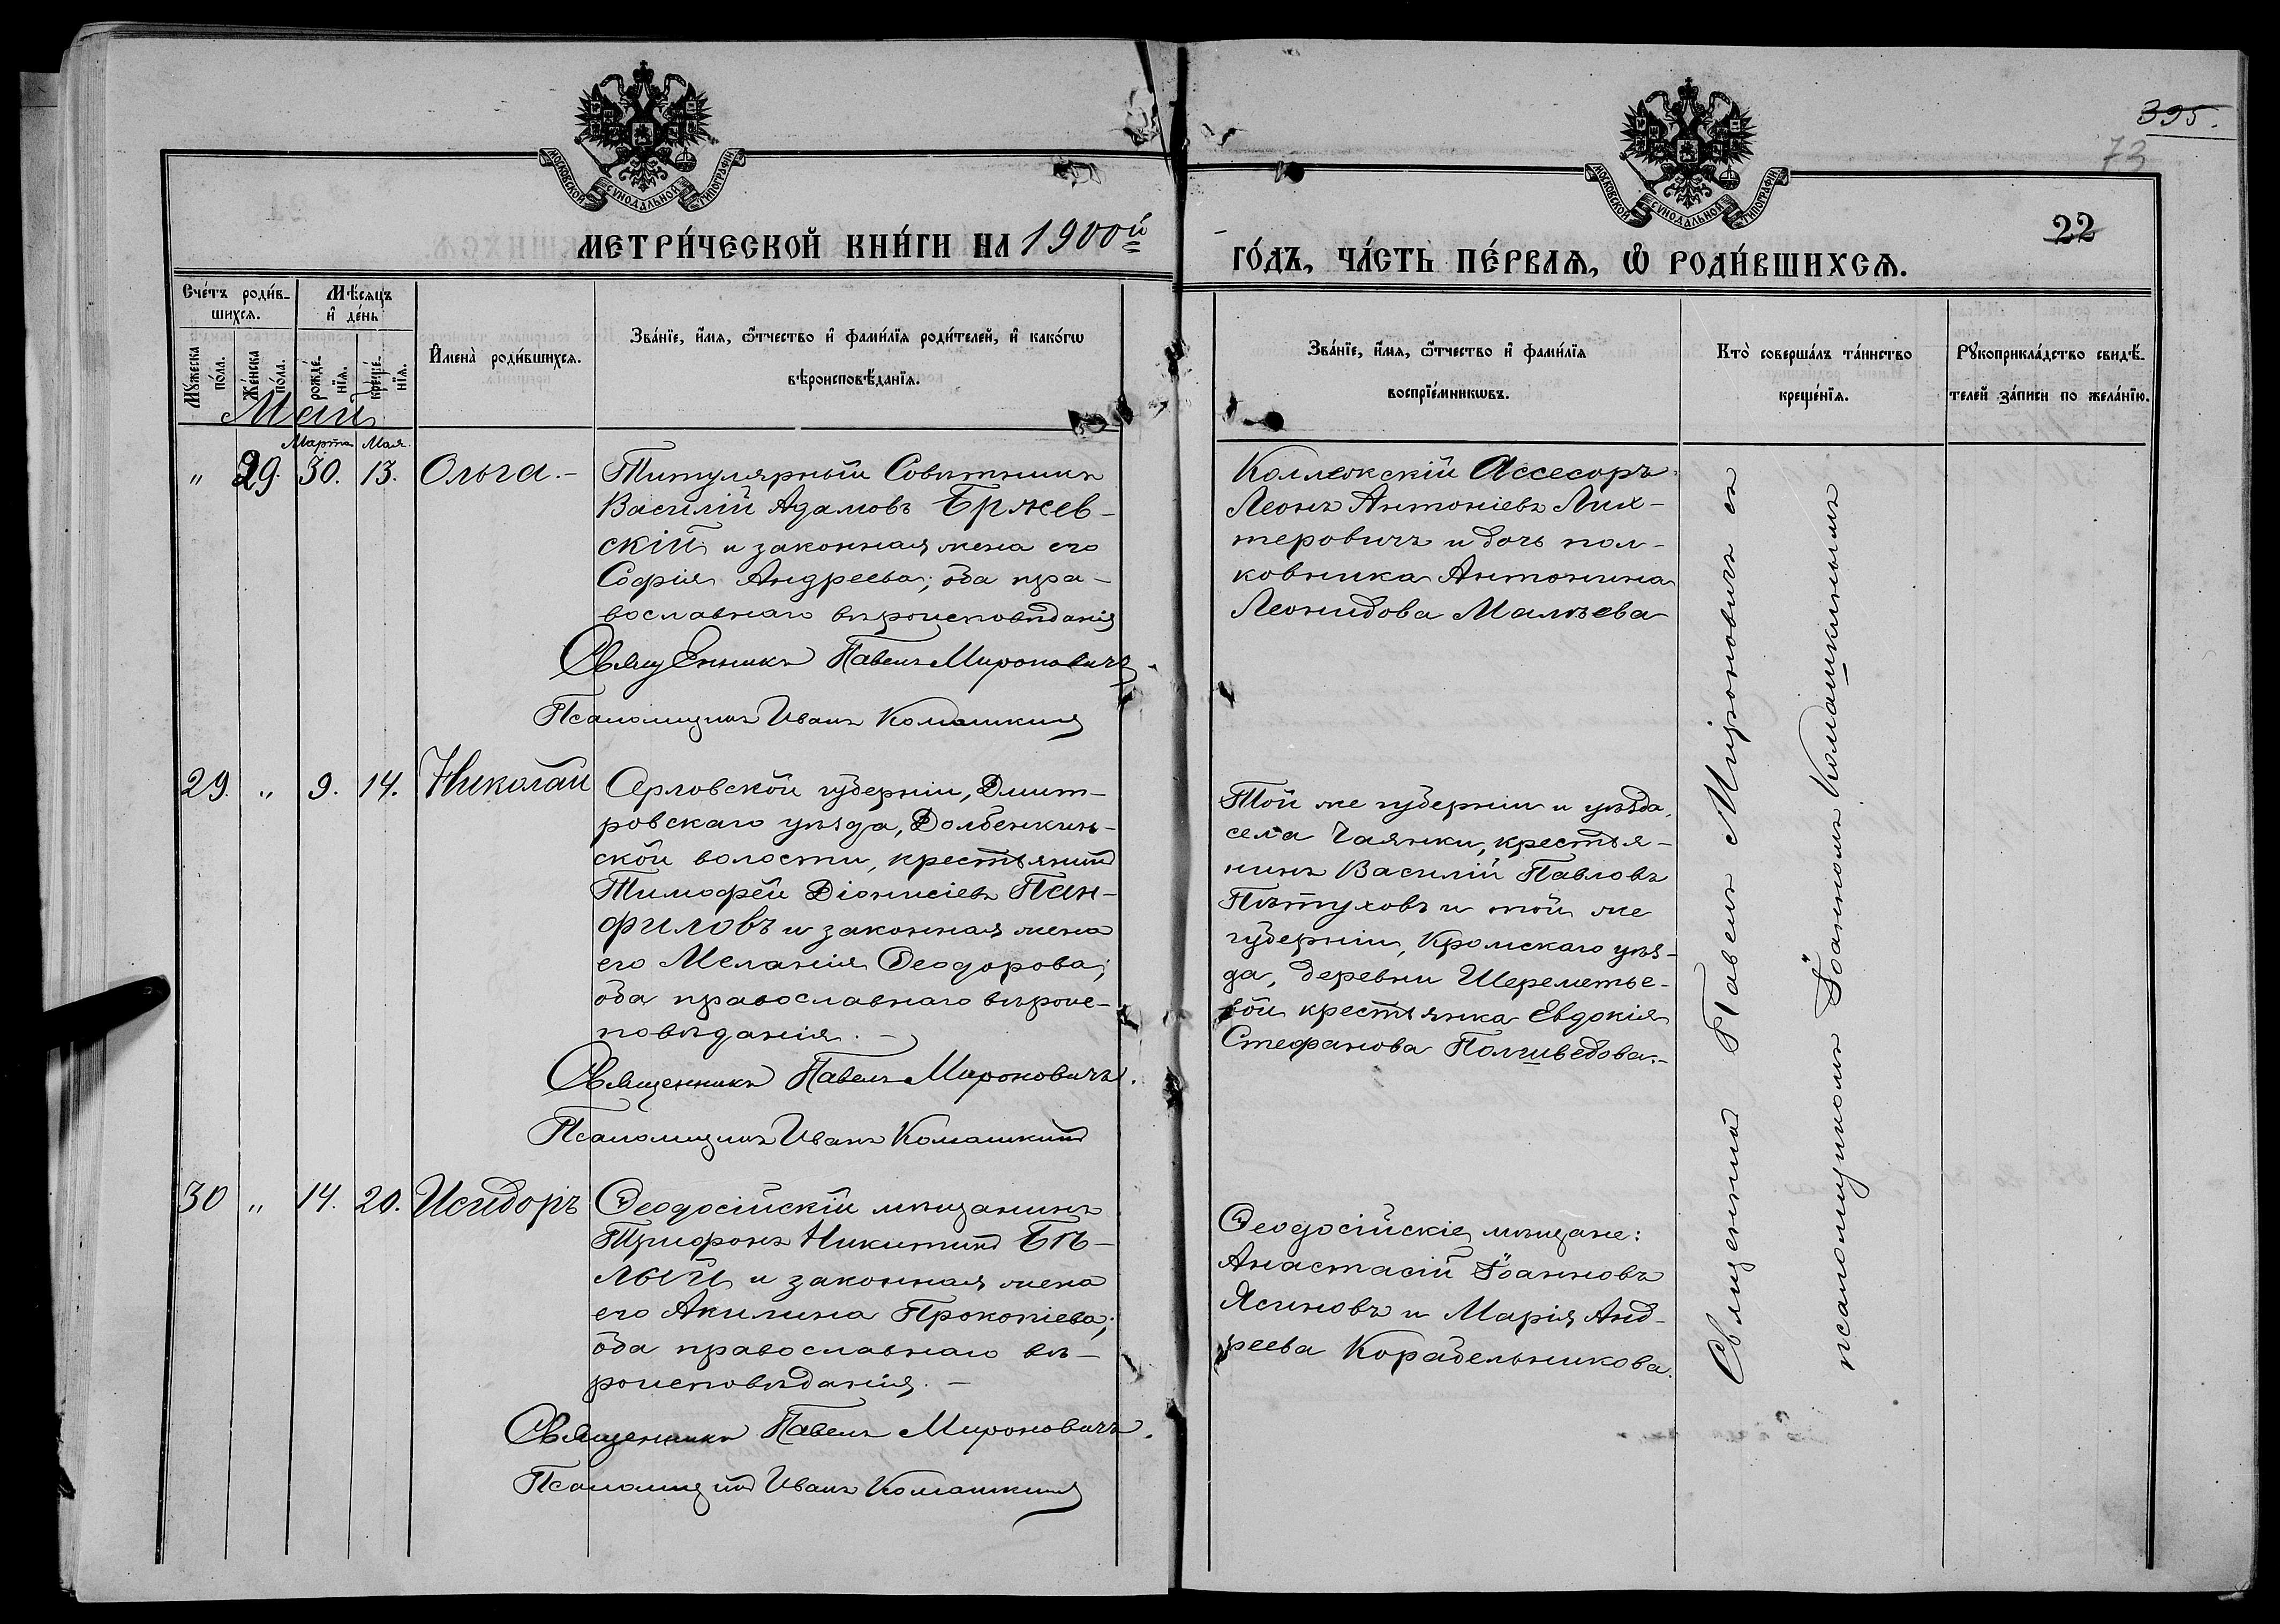 395.
73
22
МОСКОВСКОЙ СУНОДАЛЬНОЙ ТИПОГРАФІИ
МОСКОВСКОЙ СУНОДАЛЬНОЙ ТИПОГРАФІИ
МЕТРИ́ЧЕСКОЙ КНИ́ГИ НА 1900й
ГО́ДЪ, ЧА́СТЬ ПЕ́РВАѦ, Ѽ РОДИ́ВШИХСѦ.
Сче́тъ роди́в-
шихся.
Мѣ́сяцъ
и҆ де́нь
Мꙋ́жеска
по́ла.
Же́нска
по́ла.
рожде́-
нїя.
креще́-
нїя.
И҆мена̀ роди́вшихся.
Зва́нїе, и҆́мя, ѻ҆́тчество и҆ фами́лїя роди́телей, и҆ како́гѡ
вѣроисповѣ́данїя.
Зва́нїе, и҆́мя, ѻ҆́тчество и҆ фами́лїя
воспрїе́мникѡвъ.
Кто̀ соверша́лъ та́инство
креще́нїя.
Рꙋкоприкла́дство свидѣ́-
телей за́писи по жела́нїю.
Май
Марта Мая.
" 29. 30. 13. Ольга.-
Титулярный Совѣтникъ
Василій Адамовъ Бржев-
скій и законная жена его
Софія Андреева; оба пра-
вославнаго вѣроисповѣданія
Священникъ Павелъ Мироновичъ.
Псаломщикъ Иванъ Комашкинъ
Коллежскій Ассесоръ
Леонъ Антоніевъ Лих-
теровичъ и дочь пол-
ковника Антонина
Леонидова Мальева
29. " 9. 14. Николай
Орловской губерніи, Дмит-
ровскаго уѣзда, Долбенкин-
ской волости, крестьянинъ
Тимофей Діонисіевъ Пан-
филовъ и законная жена
его Меланія Ѳеодорова;
оба православнаго вѣроис-
повѣданія.-
Священникъ Павелъ Мироновичъ.
Псаломщикъ Иванъ Комашкинъ
Той же губерніи и уѣзда,
села Чаянки, крестья-
нинъ Василій Павловъ
Пѣтуховъ и той же
губерніи, Кромскаго уѣз-
да, деревни Шереметье-
вой крестьянка Евдокія
Стефанова Полшведова.-
30 " 14. 20. Исидоръ
Ѳеодосійскій мѣщанинъ
Трифонъ Никитинъ Бѣ-
лый и законная жена
его Акилина Прокопіева;
оба православнаго вѣ-
роисповѣданія.-
Священникъ Павелъ Мироновичъ.
Псаломщикъ Иванъ Комашкинъ
Ѳеодосійскіе мѣщане:
Анастасій Іоанновъ
Ясиновъ и Марія Анд-
реева Корабельникова.
Священникъ Павелъ Мироновичъ съ
псаломщикомъ Іоанномъ Комашкинымъ